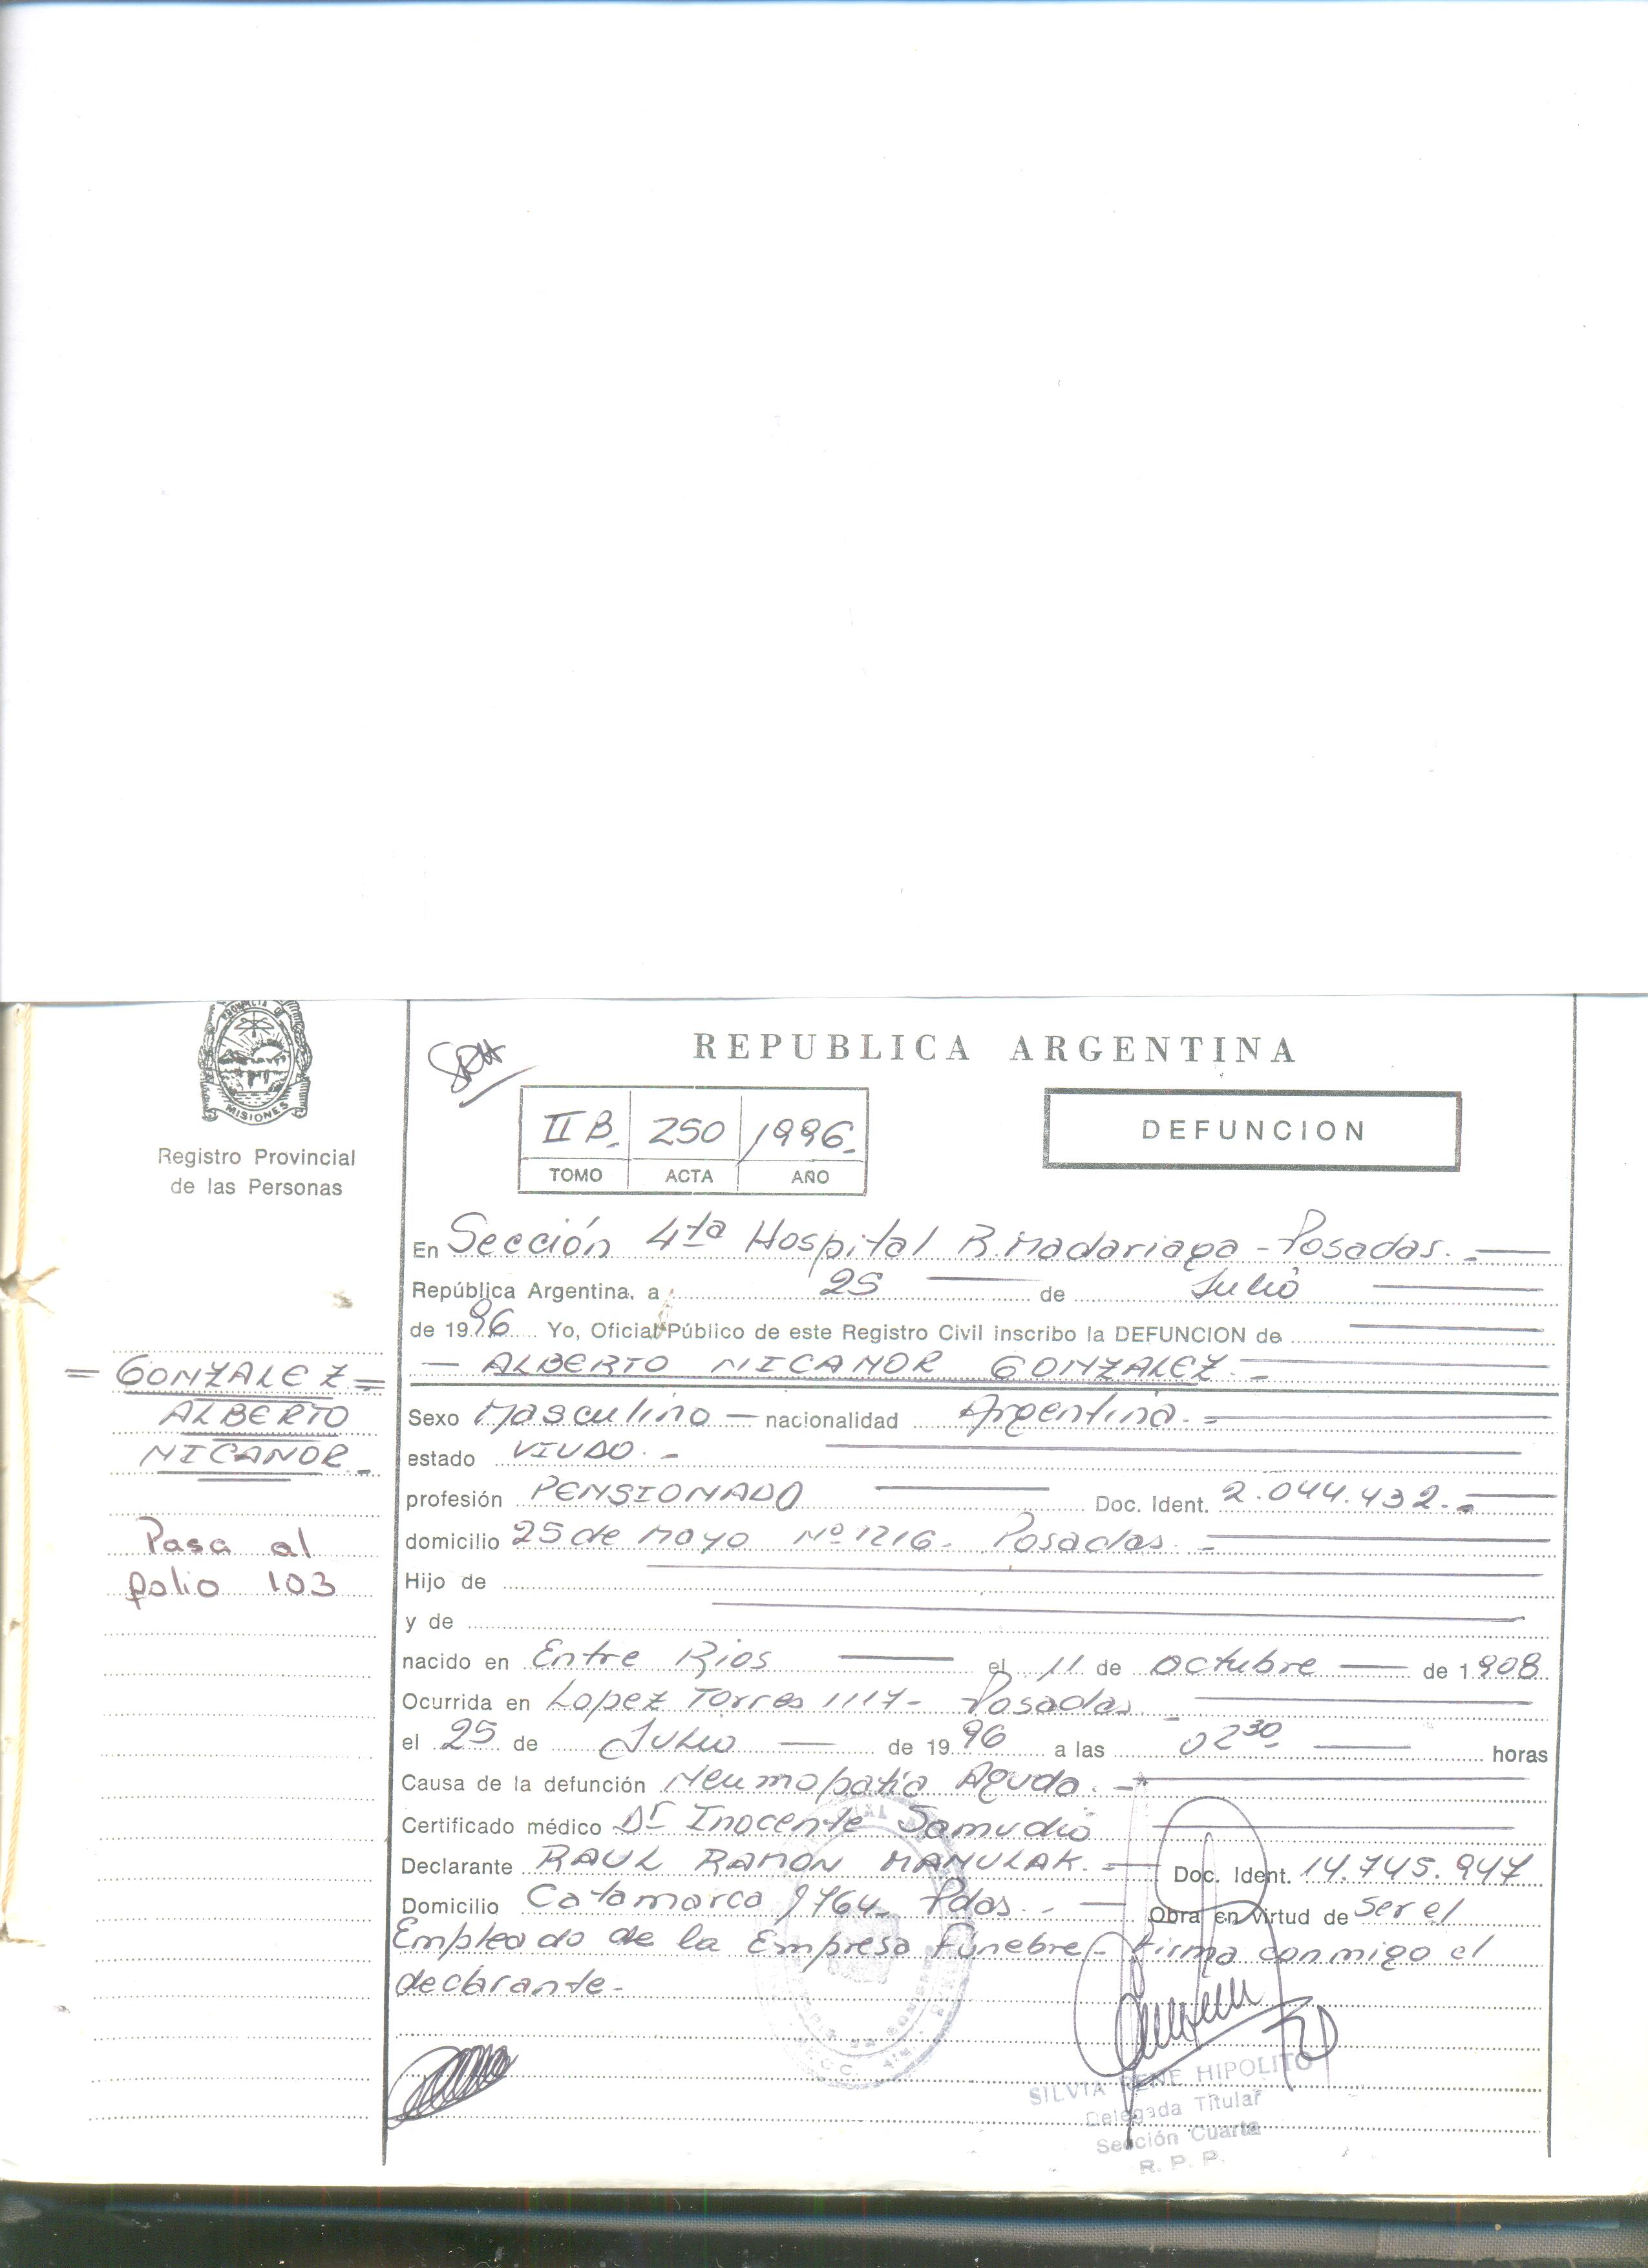 PROVINCIA DE
MISIONES
Registro Provincial
de las Personas
= GONZALEZ =
ALBERTO
NICANOR -
Pasa al
folio 103
REPUBLICA ARGENTINA
II B. 250 1996.-
TOMO ACTA AÑO
DEFUNCION
En Sección 4ta Hospital R. Madariaga - Posadas. -
República Argentina, a 25 de Julio
de 1996 Yo, Oficial Público de este Registro Civil inscribo la DEFUNCION de
- ALBERTO NICANOR GONZALEZ. -
Sexo Masculino - nacionalidad Argentina. -
estado VIUDO. -
profesión PENSIONADO Doc. Ident. 2.044.432. -
domicilio 25 de Mayo Nº 1216 - Posadas. -
Hijo de
y de
nacido en Entre Rios el 11 de octubre de 1908
Ocurrida en Lopez Torres 1117 - Posadas -
el 25 de Julio de 1996 a las 02 30 horas
Causa de la defunción Neumopatía Aguda. -
Certificado médico Dr Inocente Samudio
Declarante RAUL RAMON MANULAK. - Doc. Ident. 14.745.947
Domicilio Catamarca Pdas. - Obra en virtud de ser el
Empleado de la Empresa Funebre - Firma conmigo el
declarante -
SILVIA RENE HIPOLITO
Delegada Titular
Sección Cuarta
R. P. P.